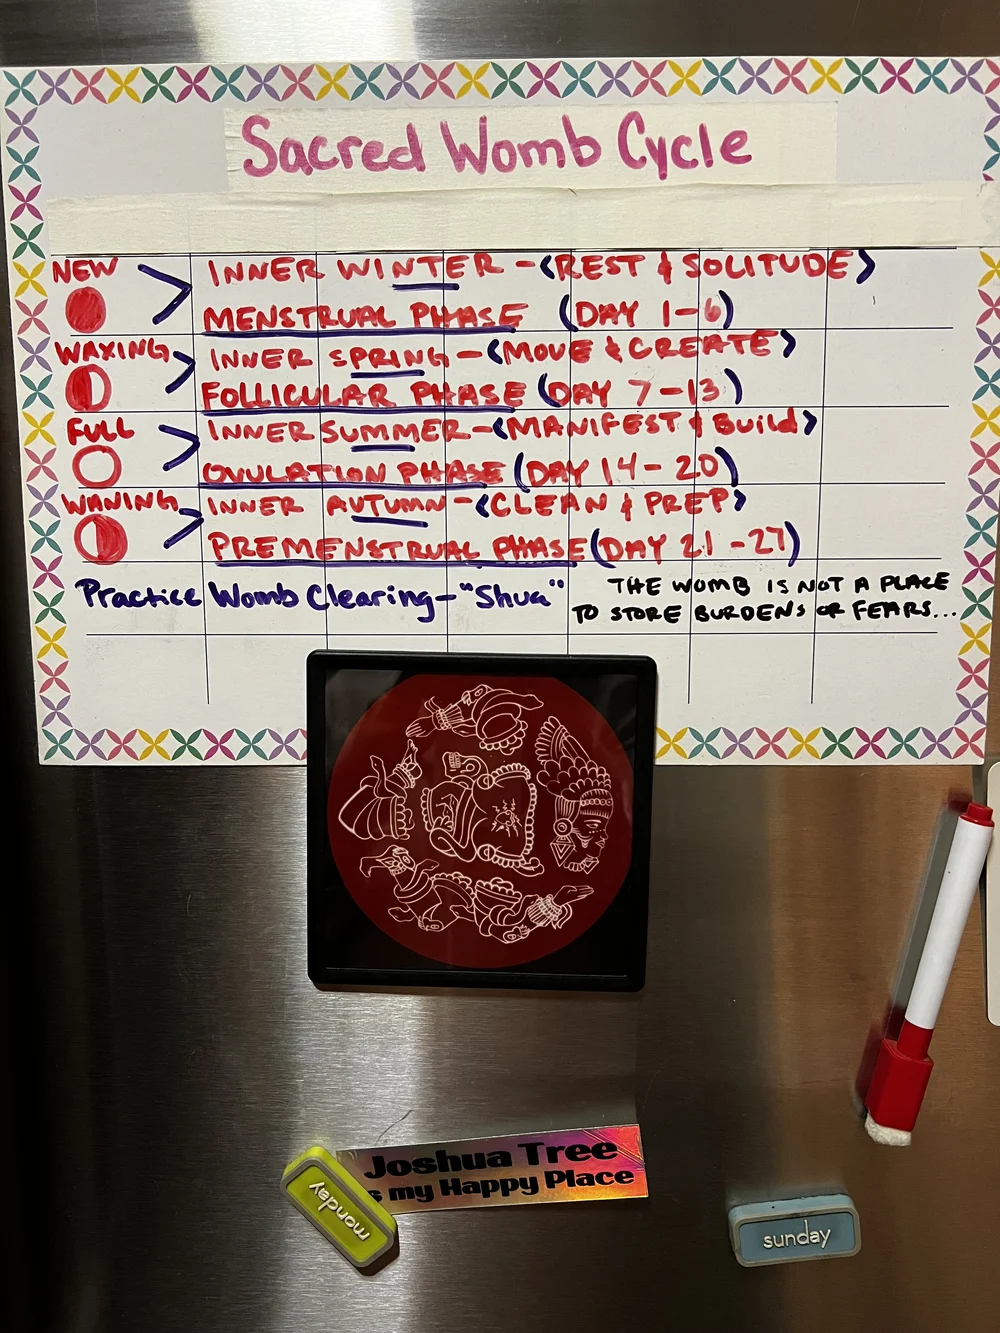 Sacred Womb Cycle
NEW
INNER WINTER - <REST & SOLITUDE>
MENSTRUAL PHASE (DAY 1-6)
WAXING
INNER SPRING - <MOVE & CREATE>
FOLLICULAR PHASE (DAY 7-13)
FULL
INNER SUMMER - <MANIFEST & Build>
OVULATION PHASE (DAY 14-20)
WANING
INNER AUTUMN - <CLEAN & PREP>
PREMENSTRUAL PHASE (DAY 21-27)
Practice Womb Clearing - "Shua"
THE WOMB IS NOT A PLACE
TO STORE BURDENS OR FEARS...
Joshua Tree
is my Happy Place
monday
sunday